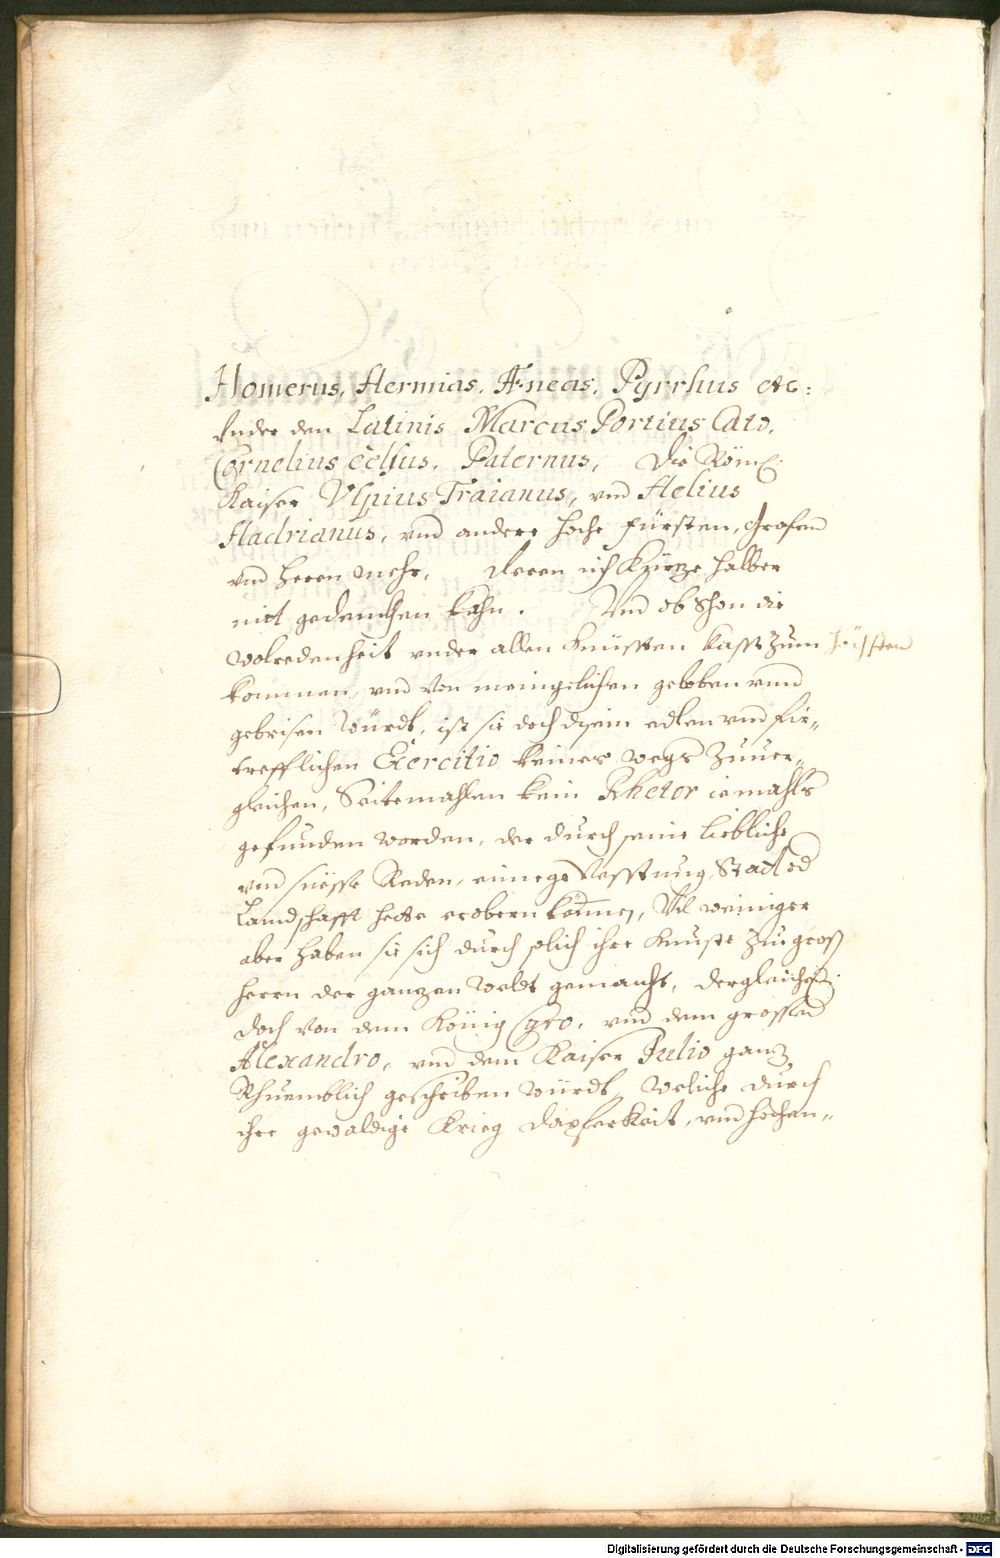 Homerus, Hermias, Æneas, Pyrrhus etc:
Vnder den Latinis Marcus Portius Cato,
Cornelius Celsus, Paternus, Die Röm:
Kaiser Vlpius Traianus, vnd Aelius
Hadrianus, vnd andere hoche Fürsten, Grafen
vnd Herrn mehr, deren ich Kürtze halber
nit gedenckhen kahn. Vnd ob schon die
wolredenheit vnder allen Künssten lasst zum höchsten
kommen, vnd von meingelichen gelobben vnnd
gebrisen würdt, ist sie doch disem edlen vnd für„
trefflichen Exercitio keines wegs zuuer„
gleichen, Seitemahlen kein Rhetor iemahls
gefunden worden, der durch seine liebliche
vnd süesse Reden, ainnege Vesstung Statt od
Landschafft hette erobern können, Vil weiniger
aber haben sie sich durch solich ihre Kunst zu gross
herrn der ganzen Weldt gemacht, dergleichen
doch von dem König Cyro, vnd dem grossen
Alexandro, vnd dem Kaiser Julio ganz
Rhuemblich geschriben würdt, weliche durch
ihre gewaldige Krieg dapferkeit, vnd hochen„
Digitalisierung gefördert durch die Deutsche Forschungsgemeinschaft - DFG